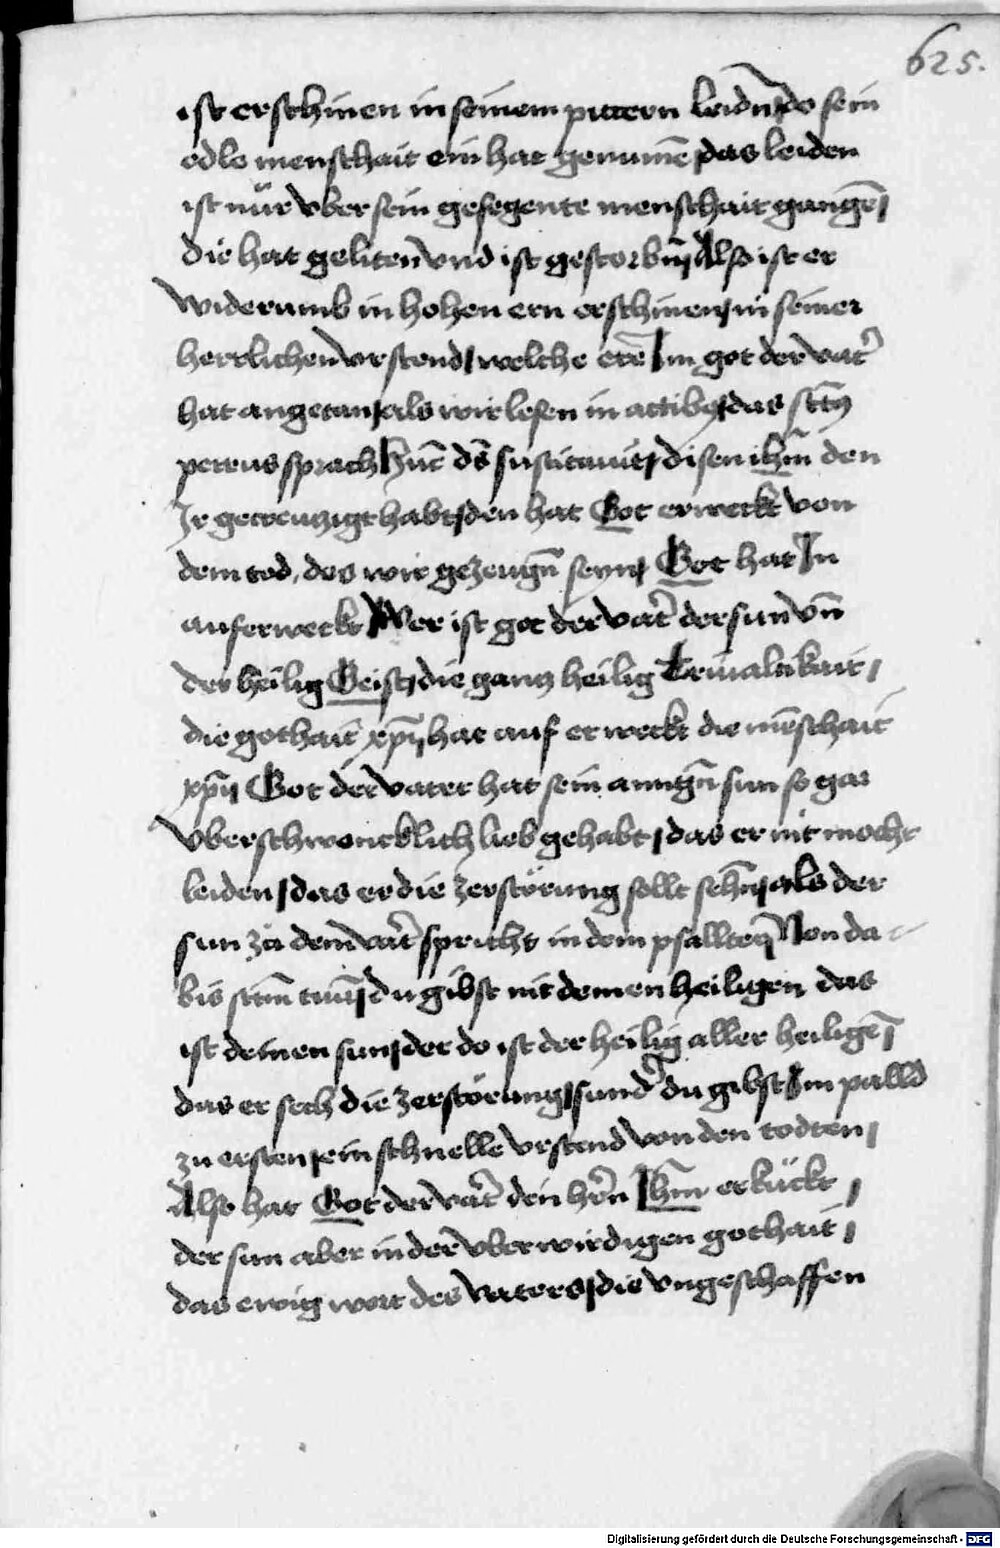 625.
ist erschinen in seinem pittern leidn̄ do sein
edle menschait ein hat genumē das leiden
ist nür vber sein gesegente menschait gangē
die hat geliten vnd ist gestorbn̄ Also ist er
widerumb in hohen ern erschinen in seiner
herrlichen vrstend welche ere Im got der vat̄
hat angetan als wir lesen in actibꝫ das sctꝰ
petrus sprach Hūc ds̄ suscitauit disen ihm̄ den
Ir gecreutzigt habt den hat Got erweckt von
dem tod, des wir gezeugn̄ seyn Got hat In
auferweckt Wer ist got der vat̄ der sun vn̄
der heilig Geist die gantz heilig Triualtikait
die gothait xp̄i hat auf erweckt die mēschait
xp̄i Got der vater hat sein ainign̄ sun so gar
vberschwencklich lieb gehabt das er nit mocht
leiden das er die zerstörung sollt sehn̄ als der
sun zů dem vat̄ spricht in dem psallter Non da-
bis sctm̄ tuū du gibst nit deinen heiligen das
ist deinen sun der do ist der heilig aller heiligē
das er sech die zerstörung sund̄ du gibst Im palld
zu ersten ein schnelle vrstend von den todten
Also hat Got der vat̄ den hr̄n Ihm̄ erkückt
der sun aber in der vberwirdigen gothait
das ewig wort des vaters die vngeschaffen
Digitalisierung gefördert durch die Deutsche Forschungsgemeinschaft - DFG